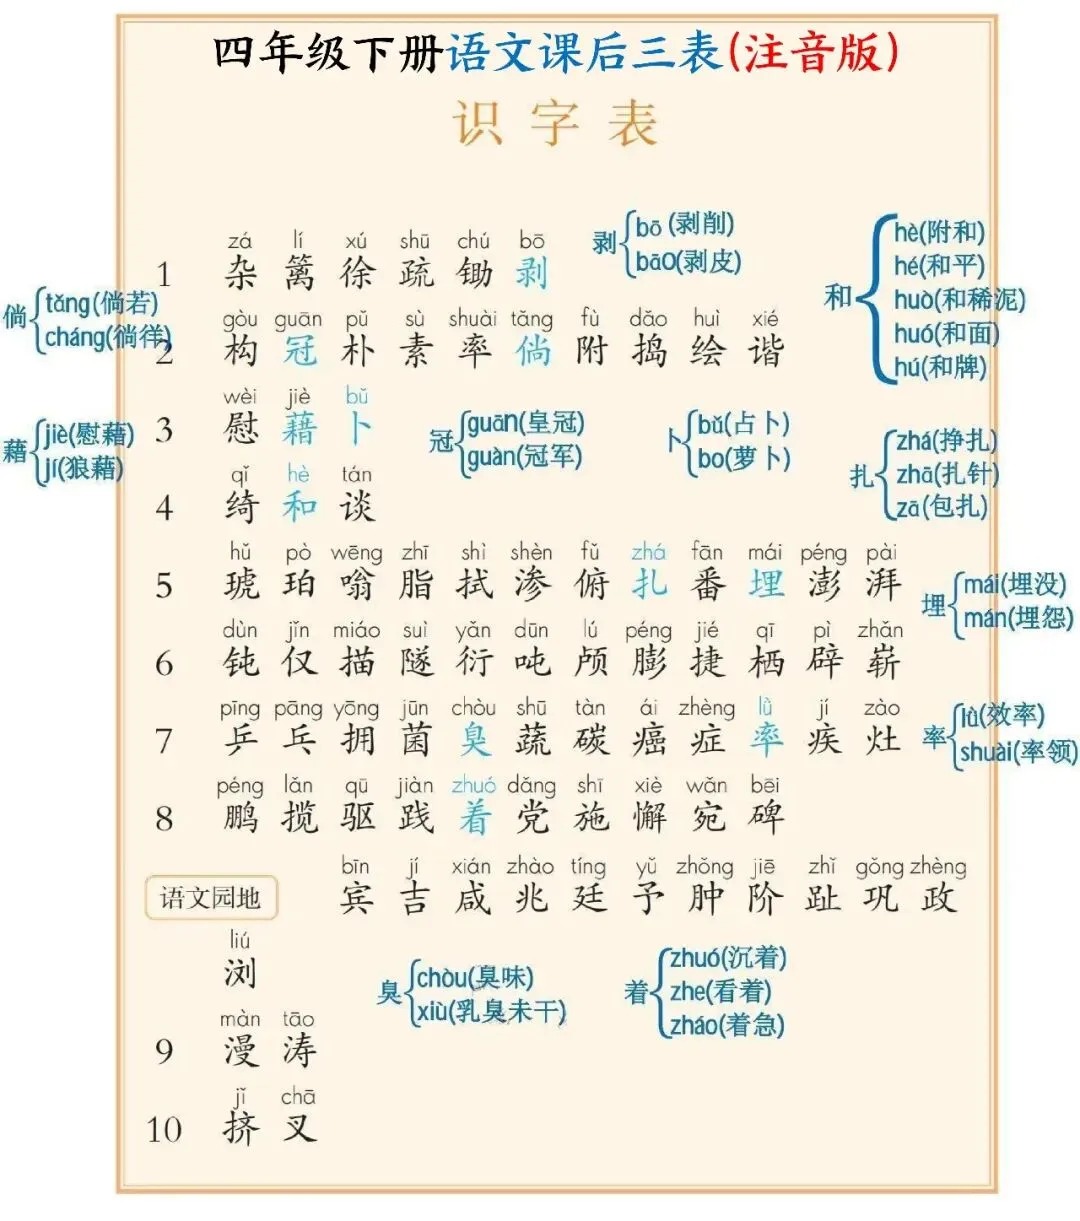 四年级下册语文课后三表(注音版)
识字表
zá lí xú shū chú bō
1 杂 篱 徐 疏 锄 剥
剥 bō(剥削)
bāo(剥皮)
和 hè(附和)
hé(和平)
huò(和稀泥)
huó(和面)
hú(和牌)
倘 tǎng(倘若)
cháng(倘徉)
gòu guān pǔ sù shuài tǎng fù dǎo huì xié
2 构 冠 朴 素 率 倘 附 捣 绘 谐
wèi jiè bǔ
3 慰 藉 卜
藉 jiè(慰藉)
jí(狼藉)
冠 guān(皇冠)
guàn(冠军)
卜 bǔ(占卜)
bo(萝卜)
扎 zhá(挣扎)
zhā(扎针)
zā(包扎)
qǐ hè tán
4 绮 和 谈
hǔ pò wēng zhī shì shèn fǔ zhá fān mái péng pài
5 琥 珀 嗡 脂 拭 渗 俯 扎 番 埋 澎 湃
埋 mái(埋没)
mán(埋怨)
dùn jǐn miáo suì yǎn dūn lú péng jié qī pì zhǎn
6 钝 仅 描 隧 衍 吨 颅 膨 捷 栖 辟 崭
pīng pāng yōng jūn chòu shū tàn ái zhèng lǜ jí zào
7 乒 乓 拥 菌 臭 蔬 碳 癌 症 率 疾 灶
率 lǜ(效率)
shuài(率领)
péng lǎn qū jiàn zhuó dǎng shī xiè wǎn bēi
8 鹏 揽 驱 践 着 党 施 懈 宛 碑
bīn jí xián zhào tíng yǔ zhǒng jiē zhǐ gǒng zhèng
语文园地 宾 吉 咸 兆 廷 予 肿 阶 趾 巩 政
liú
浏
臭 chòu(臭味)
xiù(乳臭未干)
着 zhuó(沉着)
zhe(看着)
zháo(着急)
màn tāo
9 漫 涛
jǐ chā
10 挤 叉